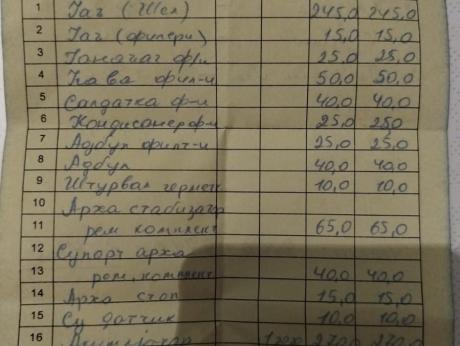 1 Газ (Шел) 245,0 245,0
2 Газ (филери) 15,0 15,0
3 25,0 25,0
4 Кава фил-и 50,0 50,0
5 Салдатка ф-и 40,0 40,0
6 Кондисонер ф-и 25,0 25,0
7 Адбул филт-и 25,0 25,0
8 Адбул 40,0 40,0
9 Штурвал 10,0 10,0
10 Арха стабизатор
11 рем комплект 65,0 65,0
12 Супорт арха
13 рем, комплект 40,0 40,0
14 Арха стоп 15,0 15,0
15 Су датчик 10,0 10,0
16 270,0 270,0